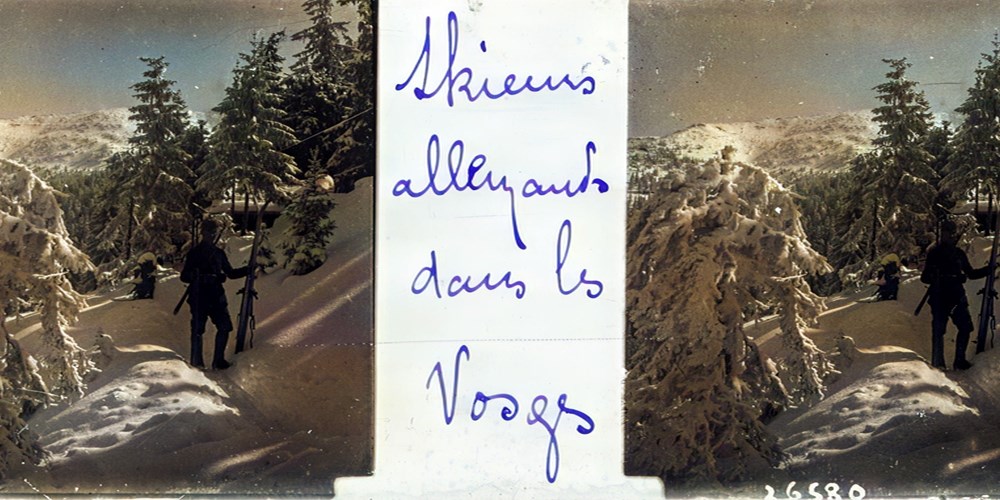 Skieurs
allemands
dans les
Vosges
26580